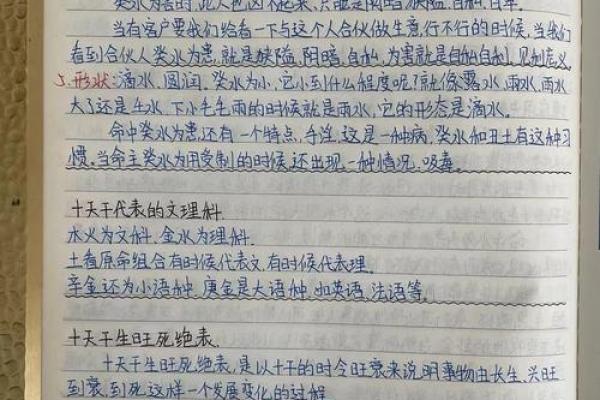 癸水为害时,此人也凶不起来,只能是阴暗、狭隘、自私、自卑。
当有客户要我们给看一下与这个人合伙做生意,行不行的时候,当我们
看到合伙人癸水为患,就是狭隘,阴暗,自私,为害就是自私自利,见利忘义
5.形状:滴水,圆润。癸水为小,它小到什么程度呢?就像露水,雨水,雨水
大了还是壬水,下小毛毛雨的时候就是雨水,它的形态是滴水。
命中癸水为患,还有一个特点,手淫,这是一种病,癸水和丑土有这种习
惯。当命主癸水为用受制的时候,还出现一种情况:吸毒。
十天干代表的文理科.
水火为文科.金水为理科.
土看原命组合有时候代表文,有时候代表理.
辛金还为小语种,庚金是大语种,如英语,法语等.
十天干生旺死绝表.
十天干生旺死绝表,是以十干的时令旺衰来说明事物由长生、兴旺
到衰,到死这样一个发展变化的过程